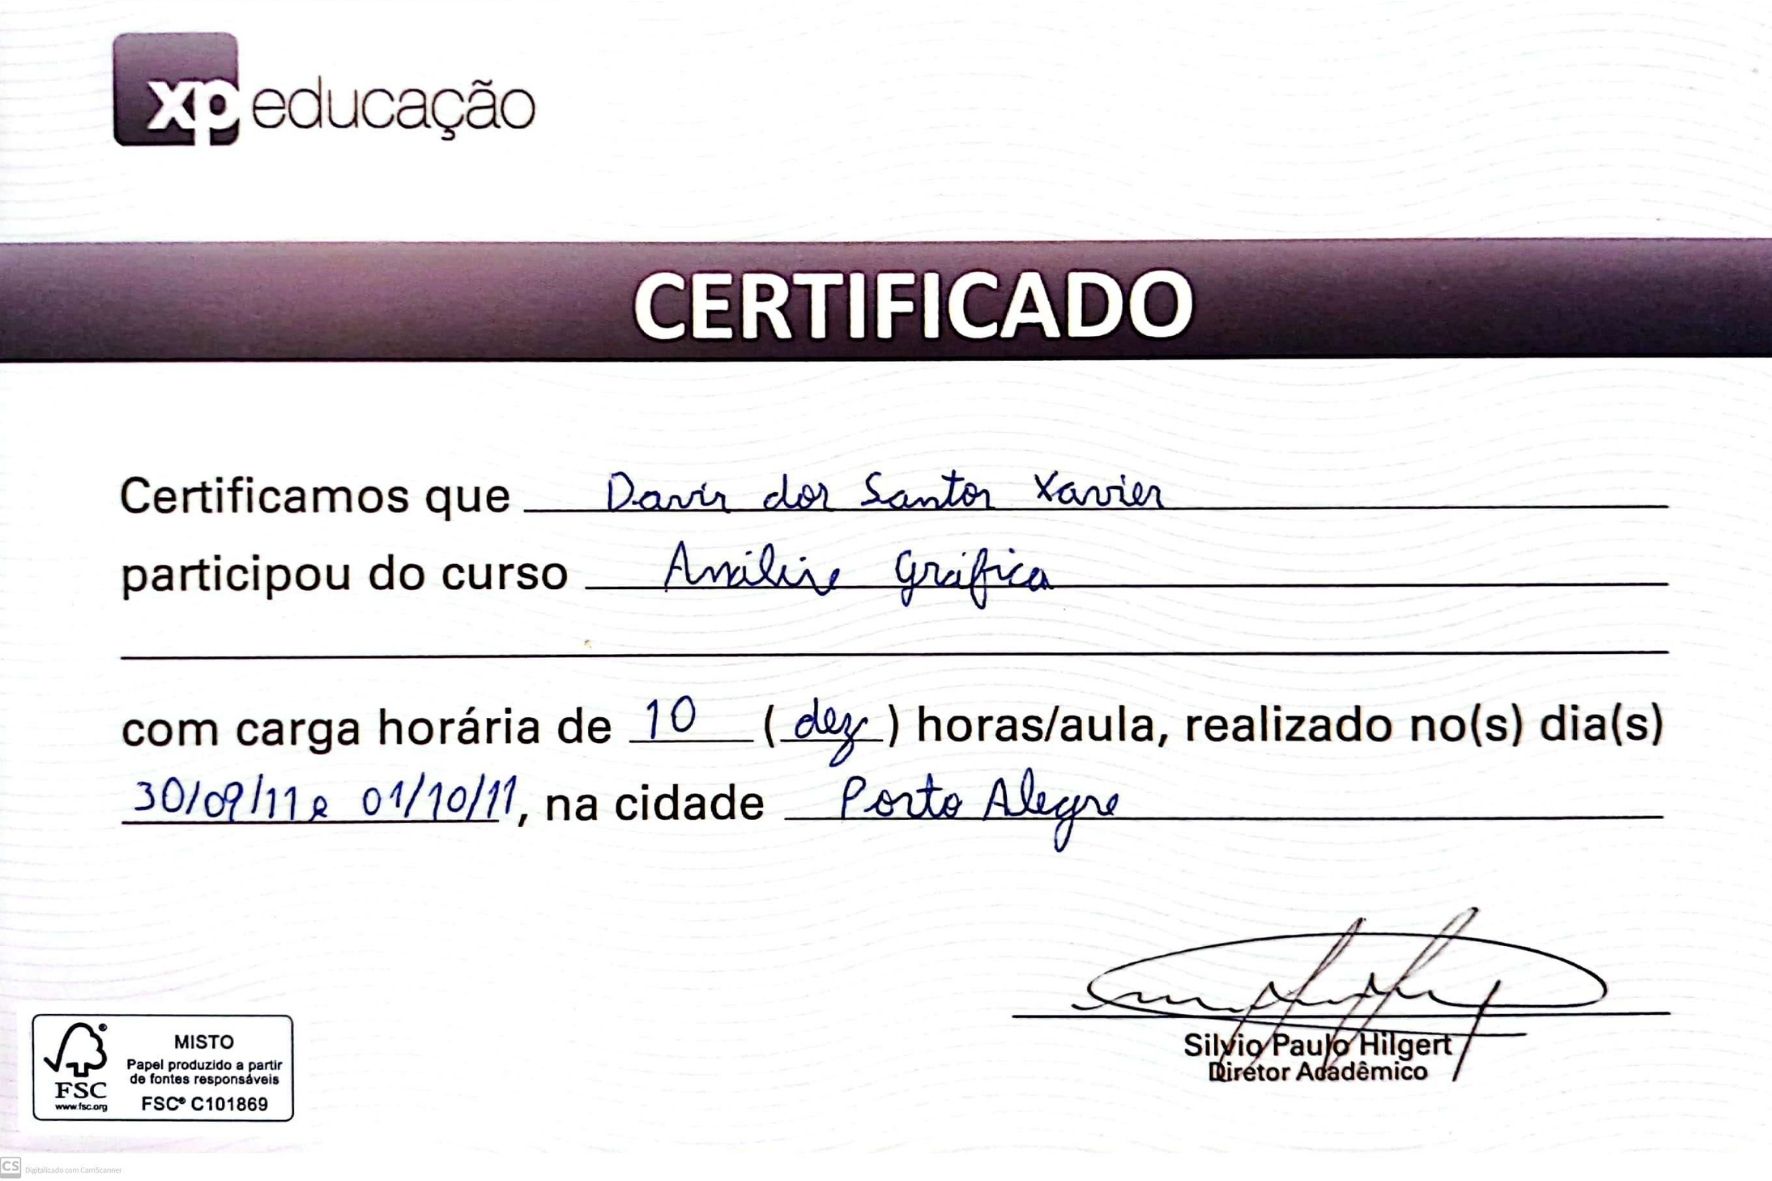 xp educação
CERTIFICADO
Certificamos que Davis dos Santos Xavier
participou do curso Análise Gráfica
com carga horária de 10 (dez) horas/aula, realizado no(s) dia(s)
30/09/11 e 01/10/11, na cidade Porto Alegre
Silvio Paulo Hilgert
Diretor Acadêmico
MISTO
Papel produzido a partir
de fontes responsáveis
FSC® C101869
FSC
www.fsc.org
CS Digitalizado com CamScanner